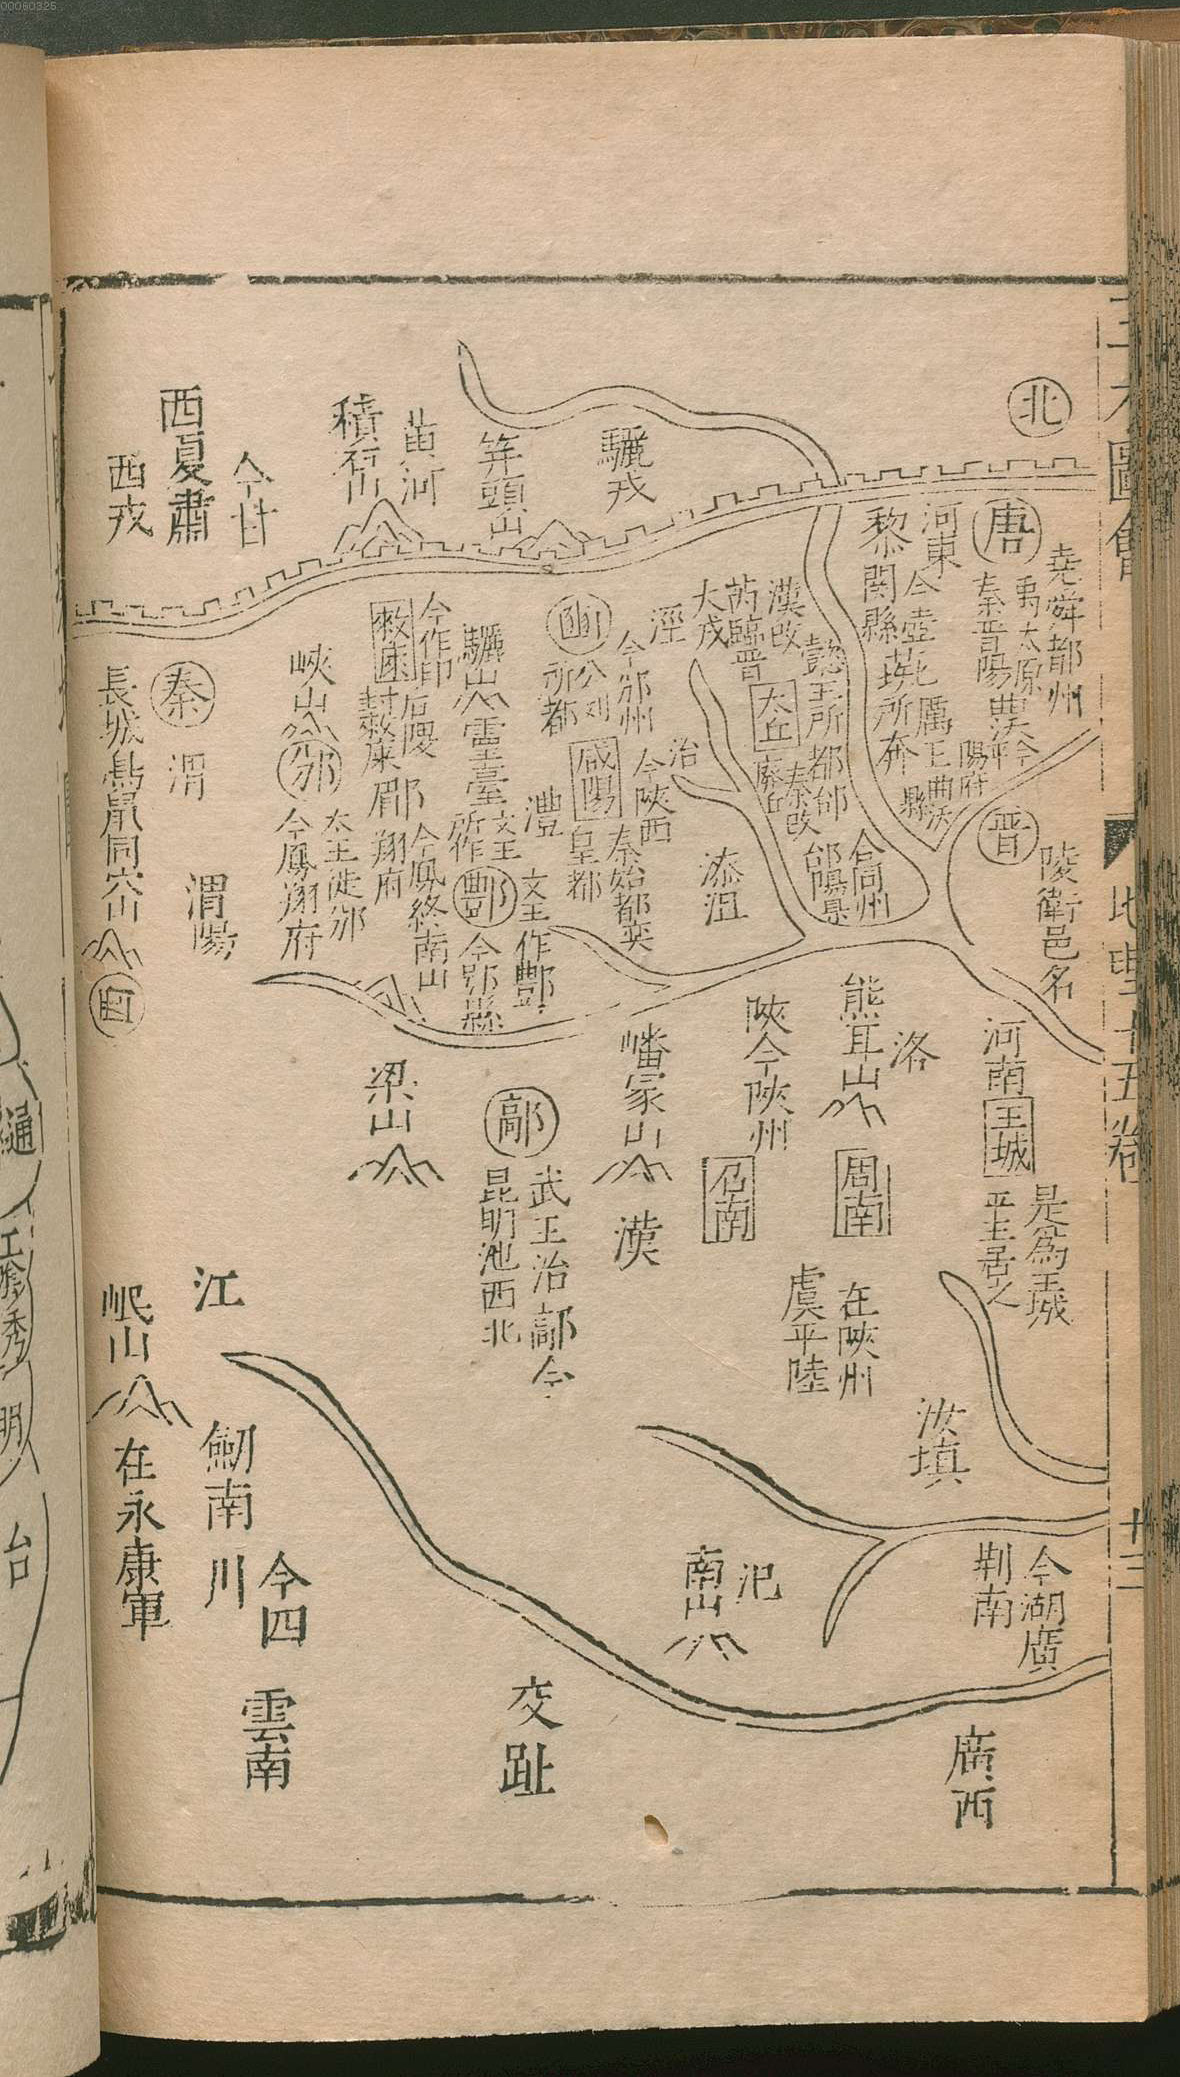 00060326
三才圖會
地理十五卷
十三
北
唐
堯舜都州
禹太原
秦晉陽
曲沃
今
平
陽府
河東
黎
今壺
関縣
厲王
所奔
曲沃
縣
晉
陵衛邑名
漢改
臨晉
大戎
懿王所都
犬丘
秦改
廢丘
今同州
郃陽縣
涇
今邠州
豳
公刘
所都
治
今陝西
咸陽
秦始都
皇都
漆沮
驪戎
笄頭山
黄河
積石山
今甘
西夏肅
西戎
驪山
靈臺
文王
所作
灃
酆
文王作酆
今鄠縣
后稷
郿
今鳳
翔府
終南山
岐山
邠
太王徙邠
今鳳翔府
秦
渭
渭陽
長城
鳥鼠同穴山
西
河南
王城
是為王城
平王居之
洛
熊耳山
周南
陝今陝州
召南
嶓冢山
漢
在陝州
虞平陸
鄗
武王治鄗今
昆明池西北
梁山
江
岷山
在永康軍
劒南
今四
川
雲南
汝墳
今湖廣
荆南
汜
南山
交趾
廣西